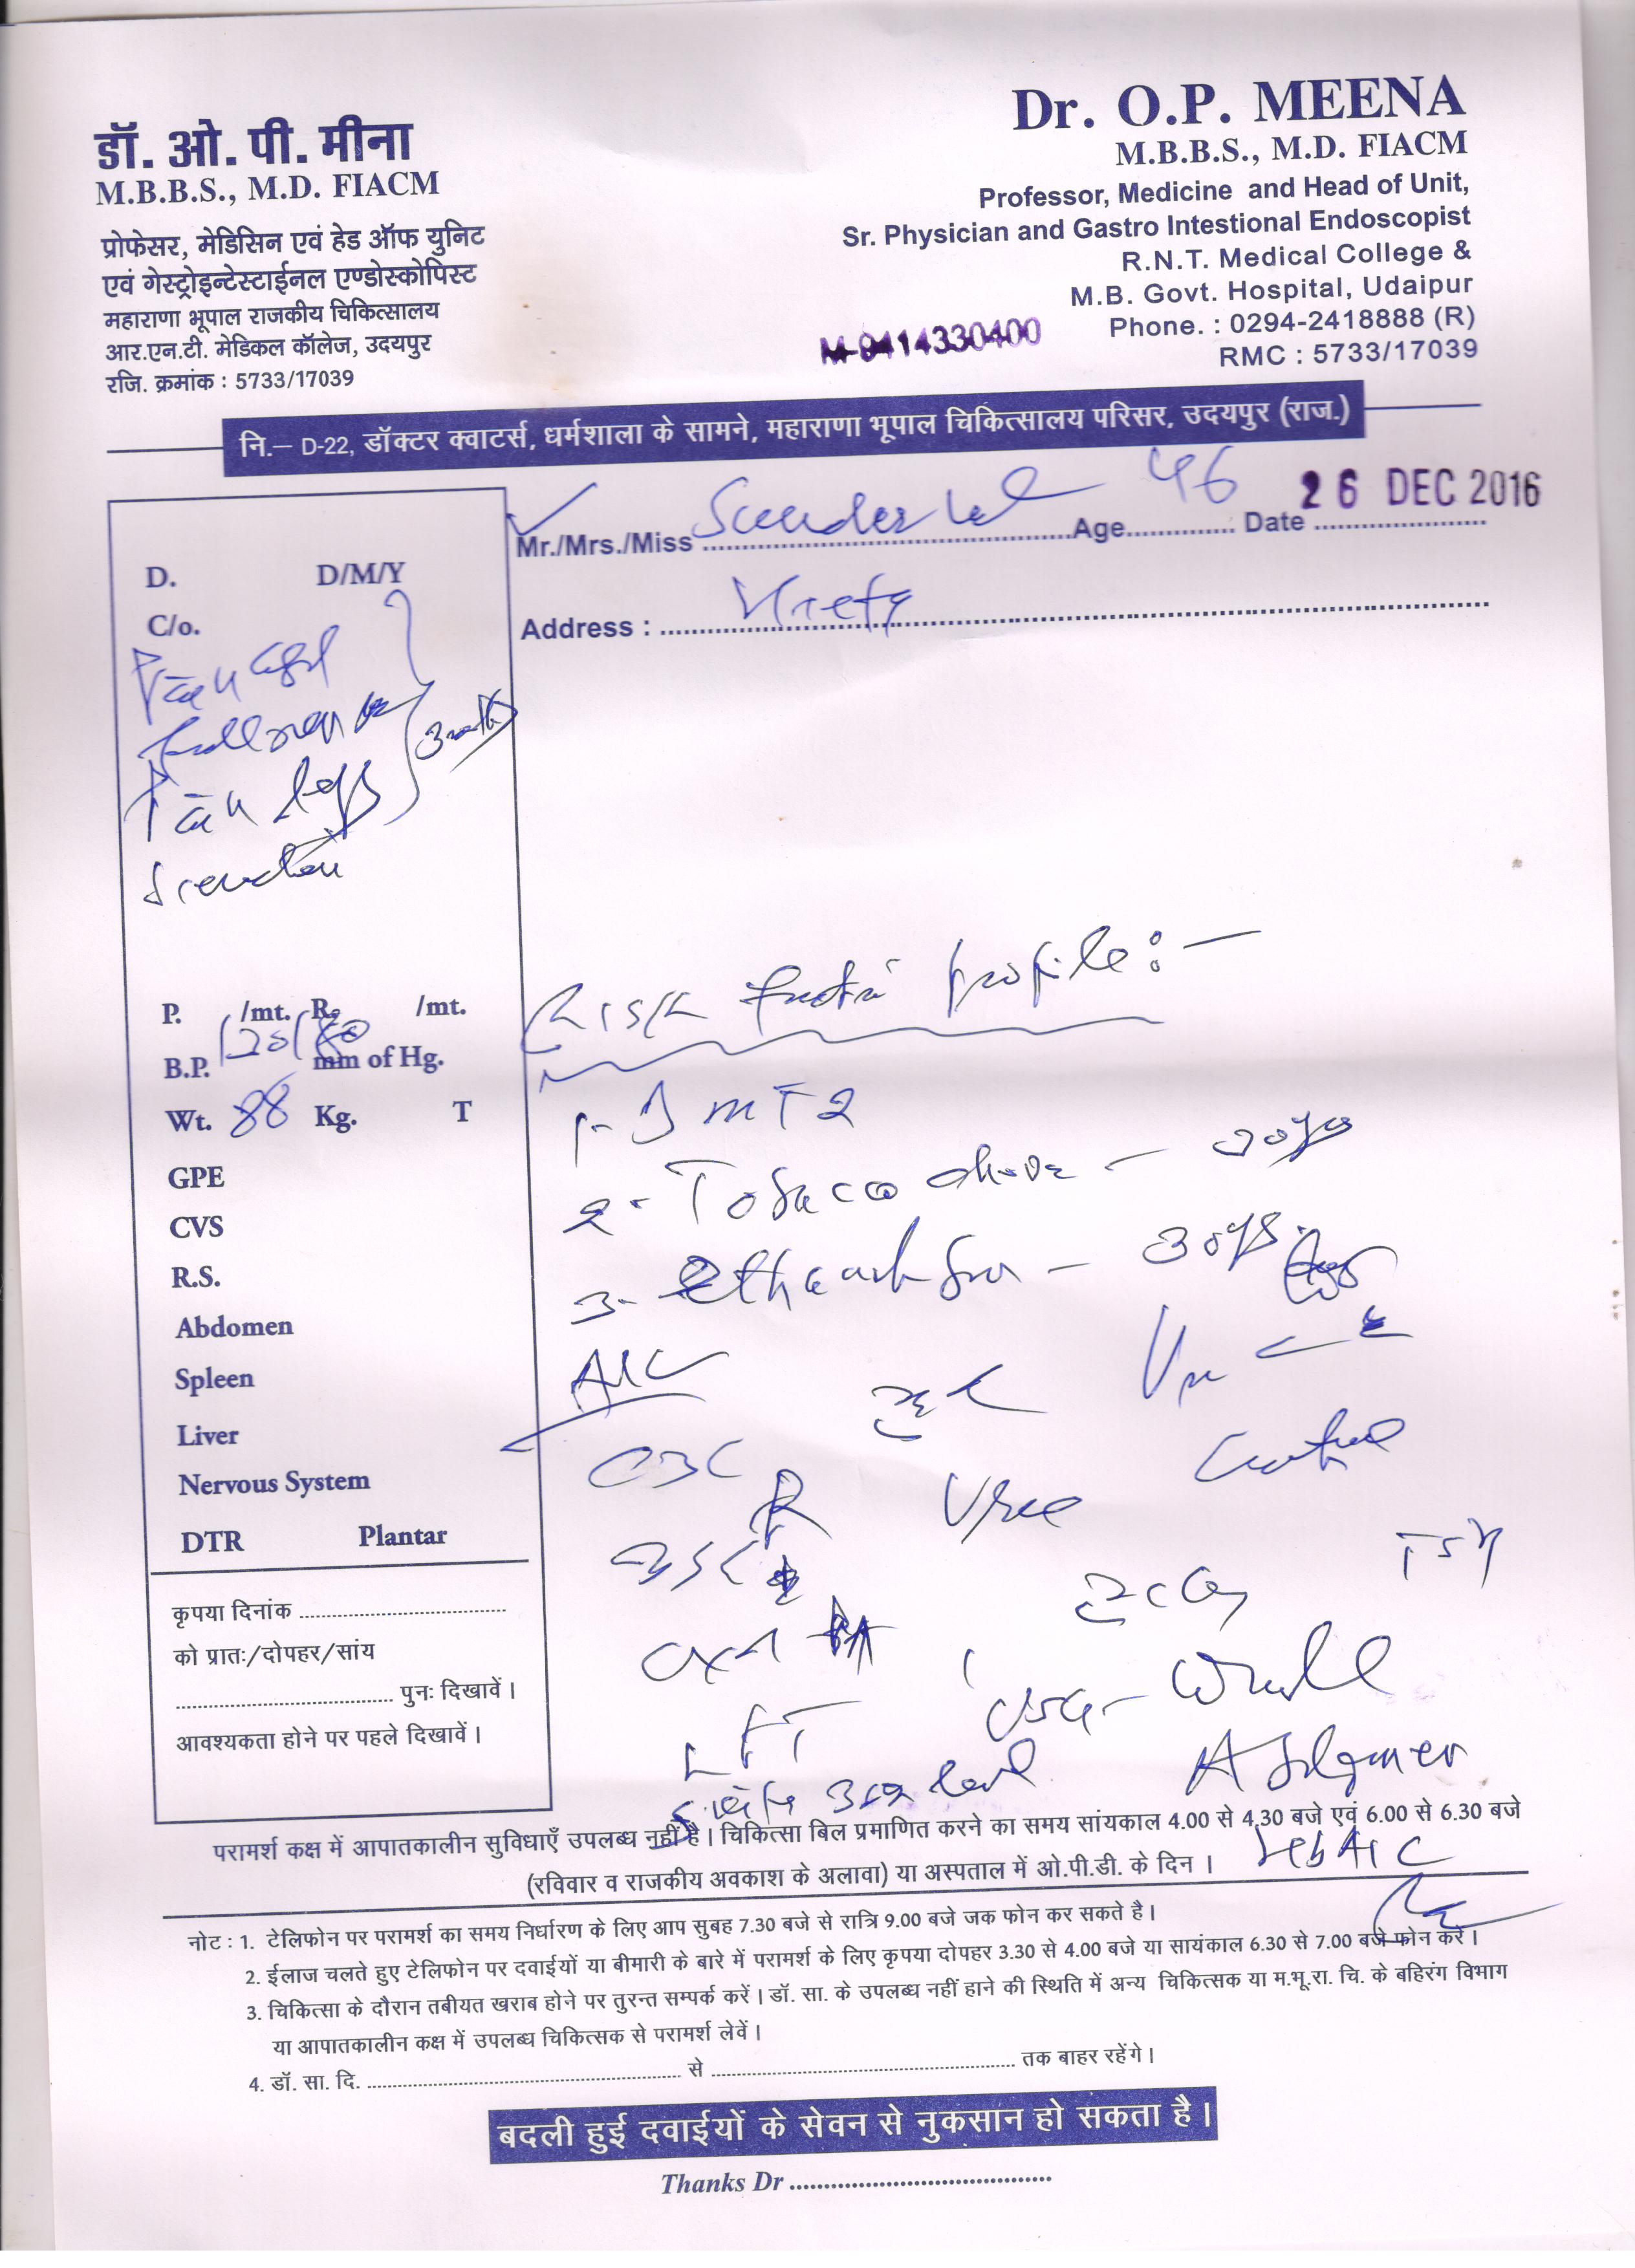 डॉ. ओ. पी. मीना
M.B.B.S., M.D. FIACM
प्रोफेसर, मेडिसिन एवं हेड ऑफ युनिट
एवं गेस्ट्रोइन्टेस्टाईनल एण्डोस्कोपिस्ट
महाराणा भूपाल राजकीय चिकित्सालय
आर.एन.टी. मेडिकल कॉलेज, उदयपुर
रजि. क्रमांक : 5733/17039
Dr. O.P. MEENA
M.B.B.S., M.D. FIACM
Professor, Medicine and Head of Unit,
Sr. Physician and Gastro Intestional Endoscopist
R.N.T. Medical College &
M.B. Govt. Hospital, Udaipur
Phone. : 0294-2418888 (R)
M-9414330400
RMC : 5733/17039
नि.– D-22, डॉक्टर क्वाटर्स, धर्मशाला के सामने, महाराणा भूपाल चिकित्सालय परिसर, उदयपुर (राज.)
Mr./Mrs./Miss Age 46 Date 26 DEC 2016
Address :
D. D/M/Y
C/o.
P. /mt. R. /mt.
B.P. 120/80 mm of Hg.
Wt. 88 Kg. T
GPE
CVS
R.S.
Abdomen
Spleen
Liver
Nervous System
DTR Plantar
कृपया दिनांक
को प्रातः/दोपहर/सांय
पुनः दिखावें।
आवश्यकता होने पर पहले दिखावें।
Risk factor profile:-
1- DMT2
2- Tobacco
3-
A1C
CBC
Urea
TSH
ECG
LFT
USG- Whole
Abdomen
HbA1C
परामर्श कक्ष में आपातकालीन सुविधाएँ उपलब्ध नहीं है। चिकित्सा बिल प्रमाणित करने का समय सांयकाल 4.00 से 4.30 बजे एवं 6.00 से 6.30 बजे
(रविवार व राजकीय अवकाश के अलावा) या अस्पताल में ओ.पी.डी. के दिन।
नोट : 1. टेलिफोन पर परामर्श का समय निर्धारण के लिए आप सुबह 7.30 बजे से रात्रि 9.00 बजे जक फोन कर सकते है।
2. ईलाज चलते हुए टेलिफोन पर दवाईयों या बीमारी के बारे में परामर्श के लिए कृपया दोपहर 3.30 से 4.00 बजे या सायंकाल 6.30 से 7.00 बजे फोन करें।
3. चिकित्सा के दौरान तबीयत खराब होने पर तुरन्त सम्पर्क करें। डॉ. सा. के उपलब्ध नहीं हाने की स्थिति में अन्य चिकित्सक या म.भू.रा. चि. के बहिरंग विभाग
या आपातकालीन कक्ष में उपलब्ध चिकित्सक से परामर्श लेवें।
4. डॉ. सा. दि. से तक बाहर रहेंगे।
बदली हुई दवाईयों के सेवन से नुकसान हो सकता है।
Thanks Dr